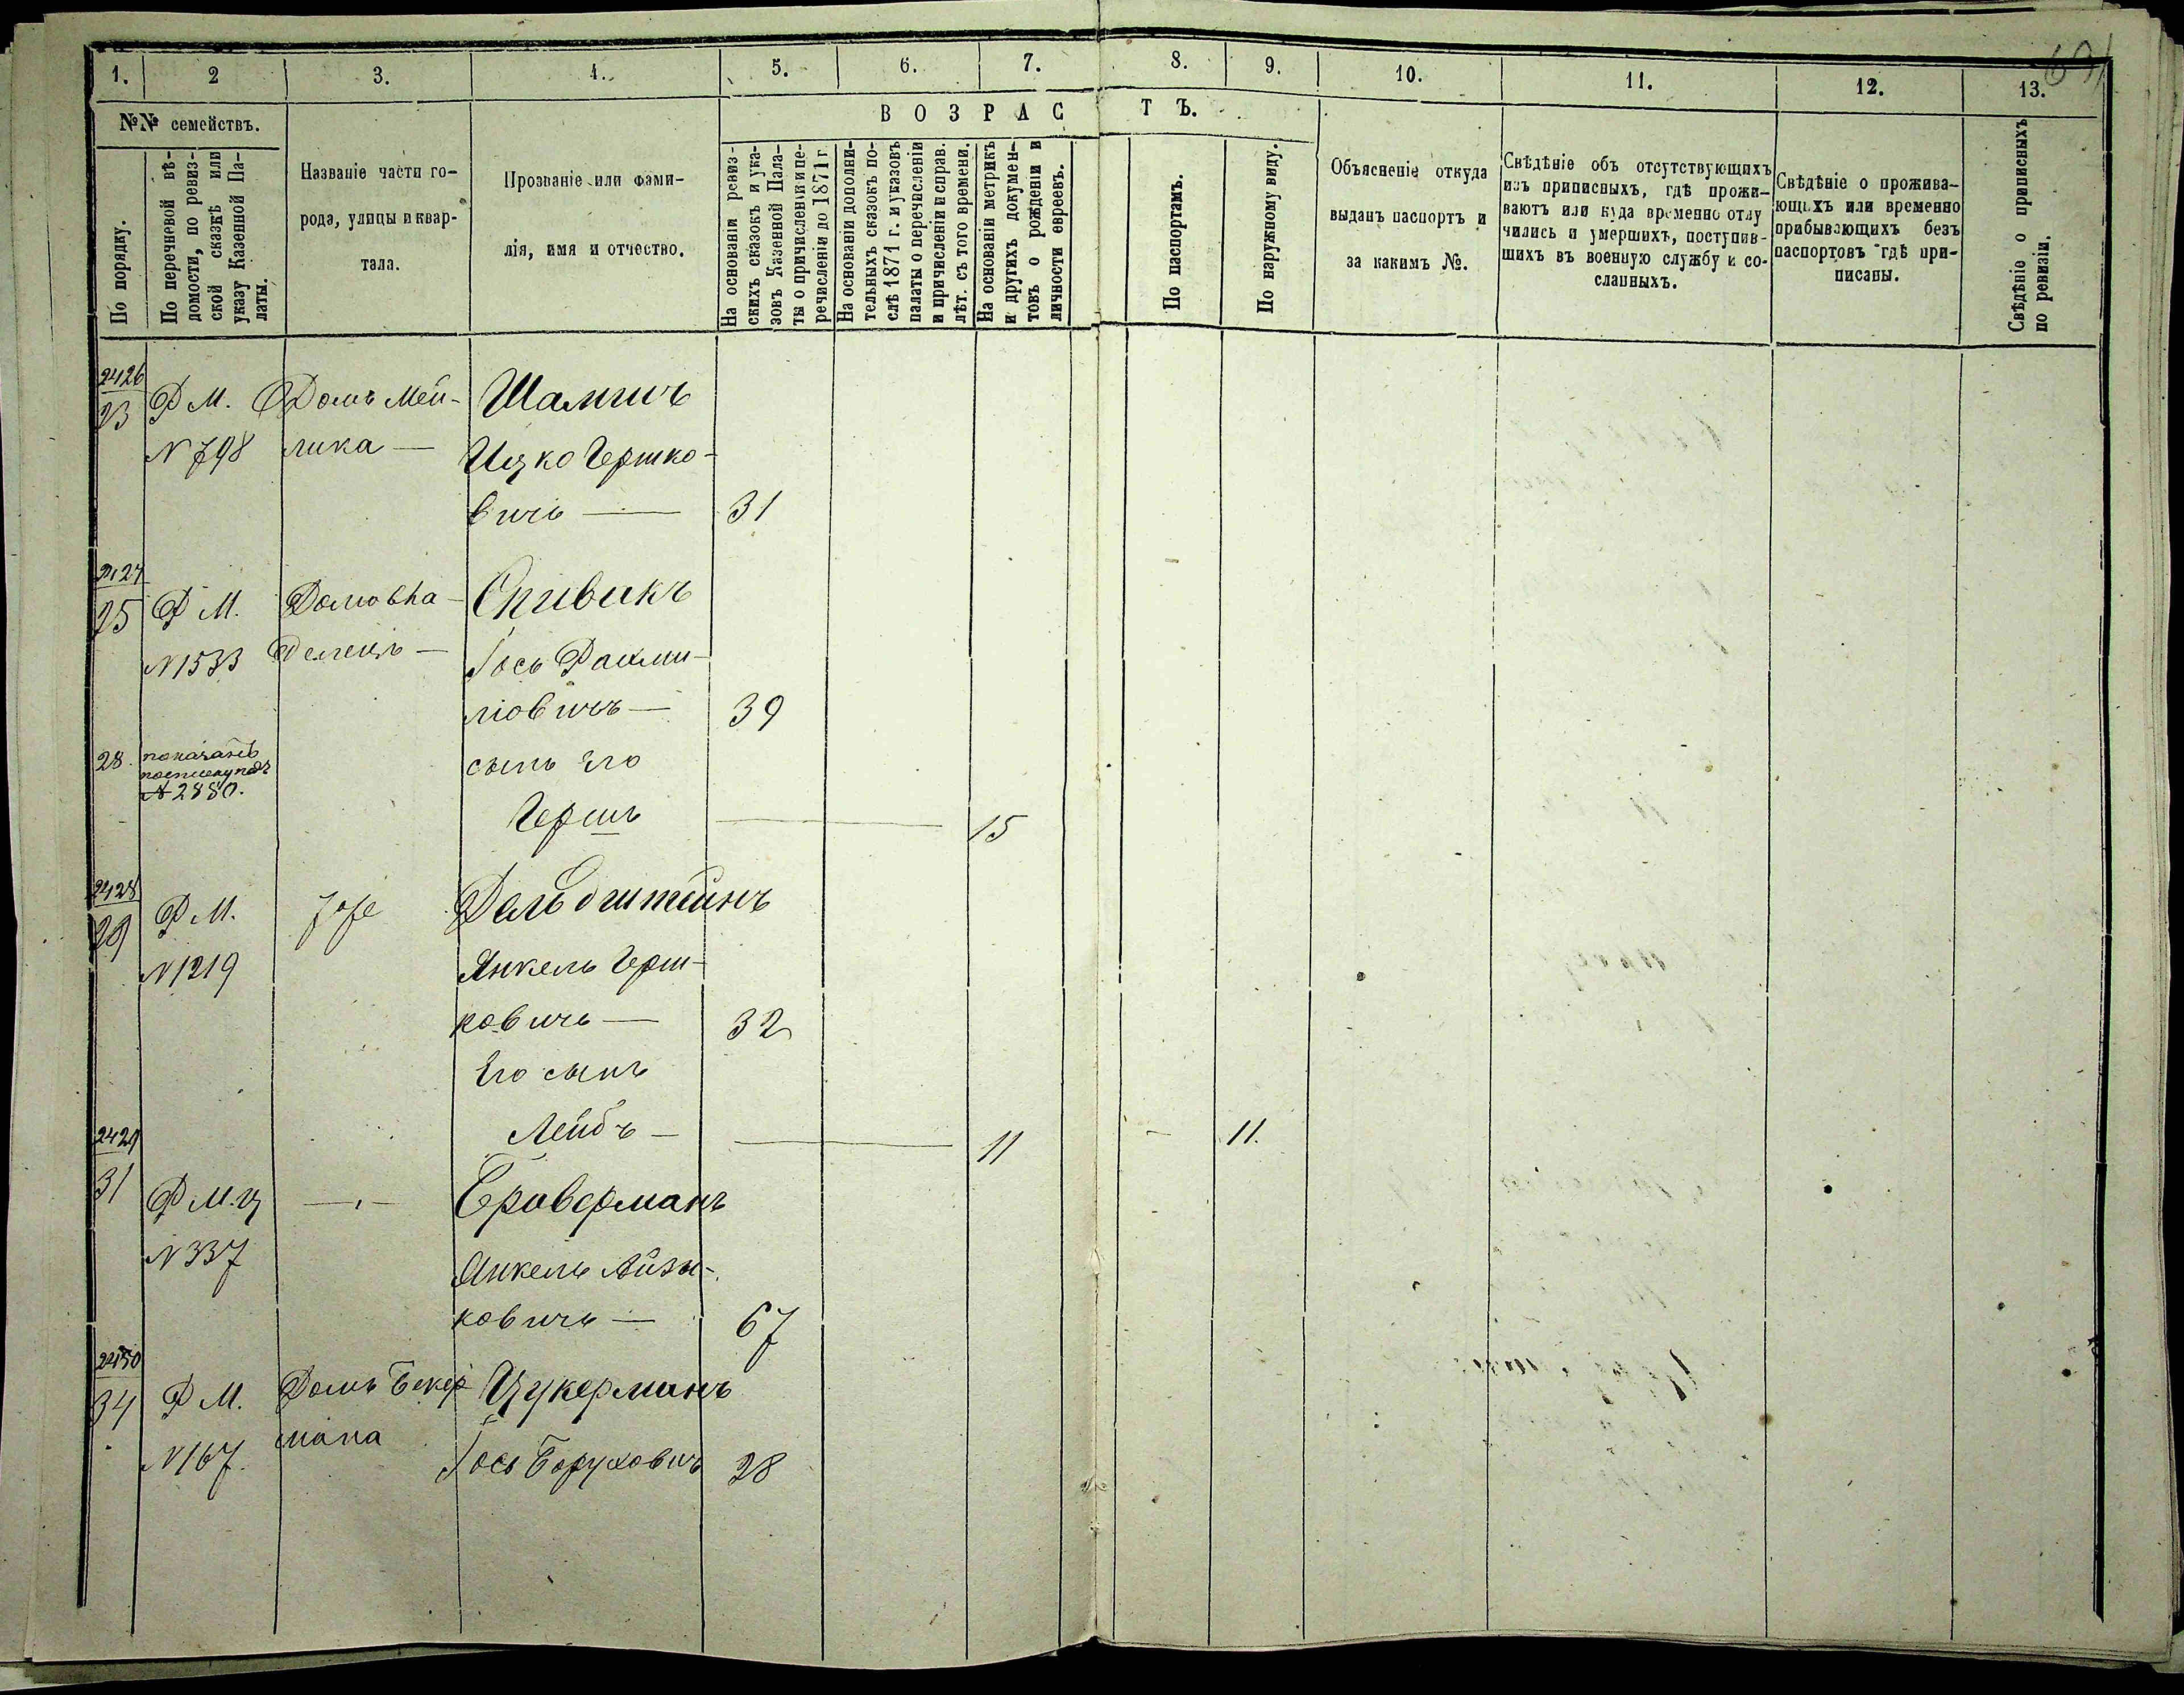 691
1. 2 3. 4. 5. 6. 7. 8. 9. 10. 11. 12. 13.
№№ семействъ.
В О З Р А С Т Ъ.
По порядку.
По перечневой вѣ-
домости, по ревиз-
ской сказкѣ или
указу Казенной Па-
латы.
Названіе части го-
рода, улицы и квар-
тала.
Прозваніе или фами-
лія, имя и отчество.
На основаніи ревиз-
скихъ сказокъ и ука-
зовъ Казенной Пала-
ты о причисленіи и пе-
речисленіи до 1871 г.
На основаніи дополни-
тельныхъ сказокъ по-
слѣ 1871 г. и указовъ
палаты о перечисленіи
и причисленіи и справ.
лѣт. съ того времени.
На основаніи метрикъ
и другихъ докумен-
товъ о рожденіи и
личности евреевъ.
По паспортамъ.
По наружному виду.
Объясненіе откуда
выданъ паспортъ и
за какимъ №.
Свѣдѣніе объ отсутствующихъ
изъ приписныхъ, гдѣ прожи-
ваютъ или куда временно отлу
чились и умершихъ, поступив-
шихъ въ военную службу и со-
сланныхъ.
Свѣдѣніе о прожива-
ющихъ или временно
прибывающихъ безъ
паспортовъ гдѣ при-
писаны.
Свѣдѣніе о приписныхъ
по ревизіи.
2426
23 Р М. Домъ Мей- Шамисъ
N 798 лика — Ицко Гершко-
вичъ — 31
2427
25 Р М. Спивакъ
N 1533 Іось Рахми-
ліовичъ — 39
28. показанъ сынъ его
подъ
N 2880.
Гершъ — 15
2428
29 Р М. Гольдштейнъ
N 1219 Янкель Герш-
ковичъ — 32
Его сынъ
Лейбъ — 11 — 11.
2429
31 Р М. — Броверманъ
N 337 Янкель Айзи-
ковичъ — 67
2430
34 Р М. Домъ Бекер- Цукерманъ
N 167. мана Іось Боруховичъ 28